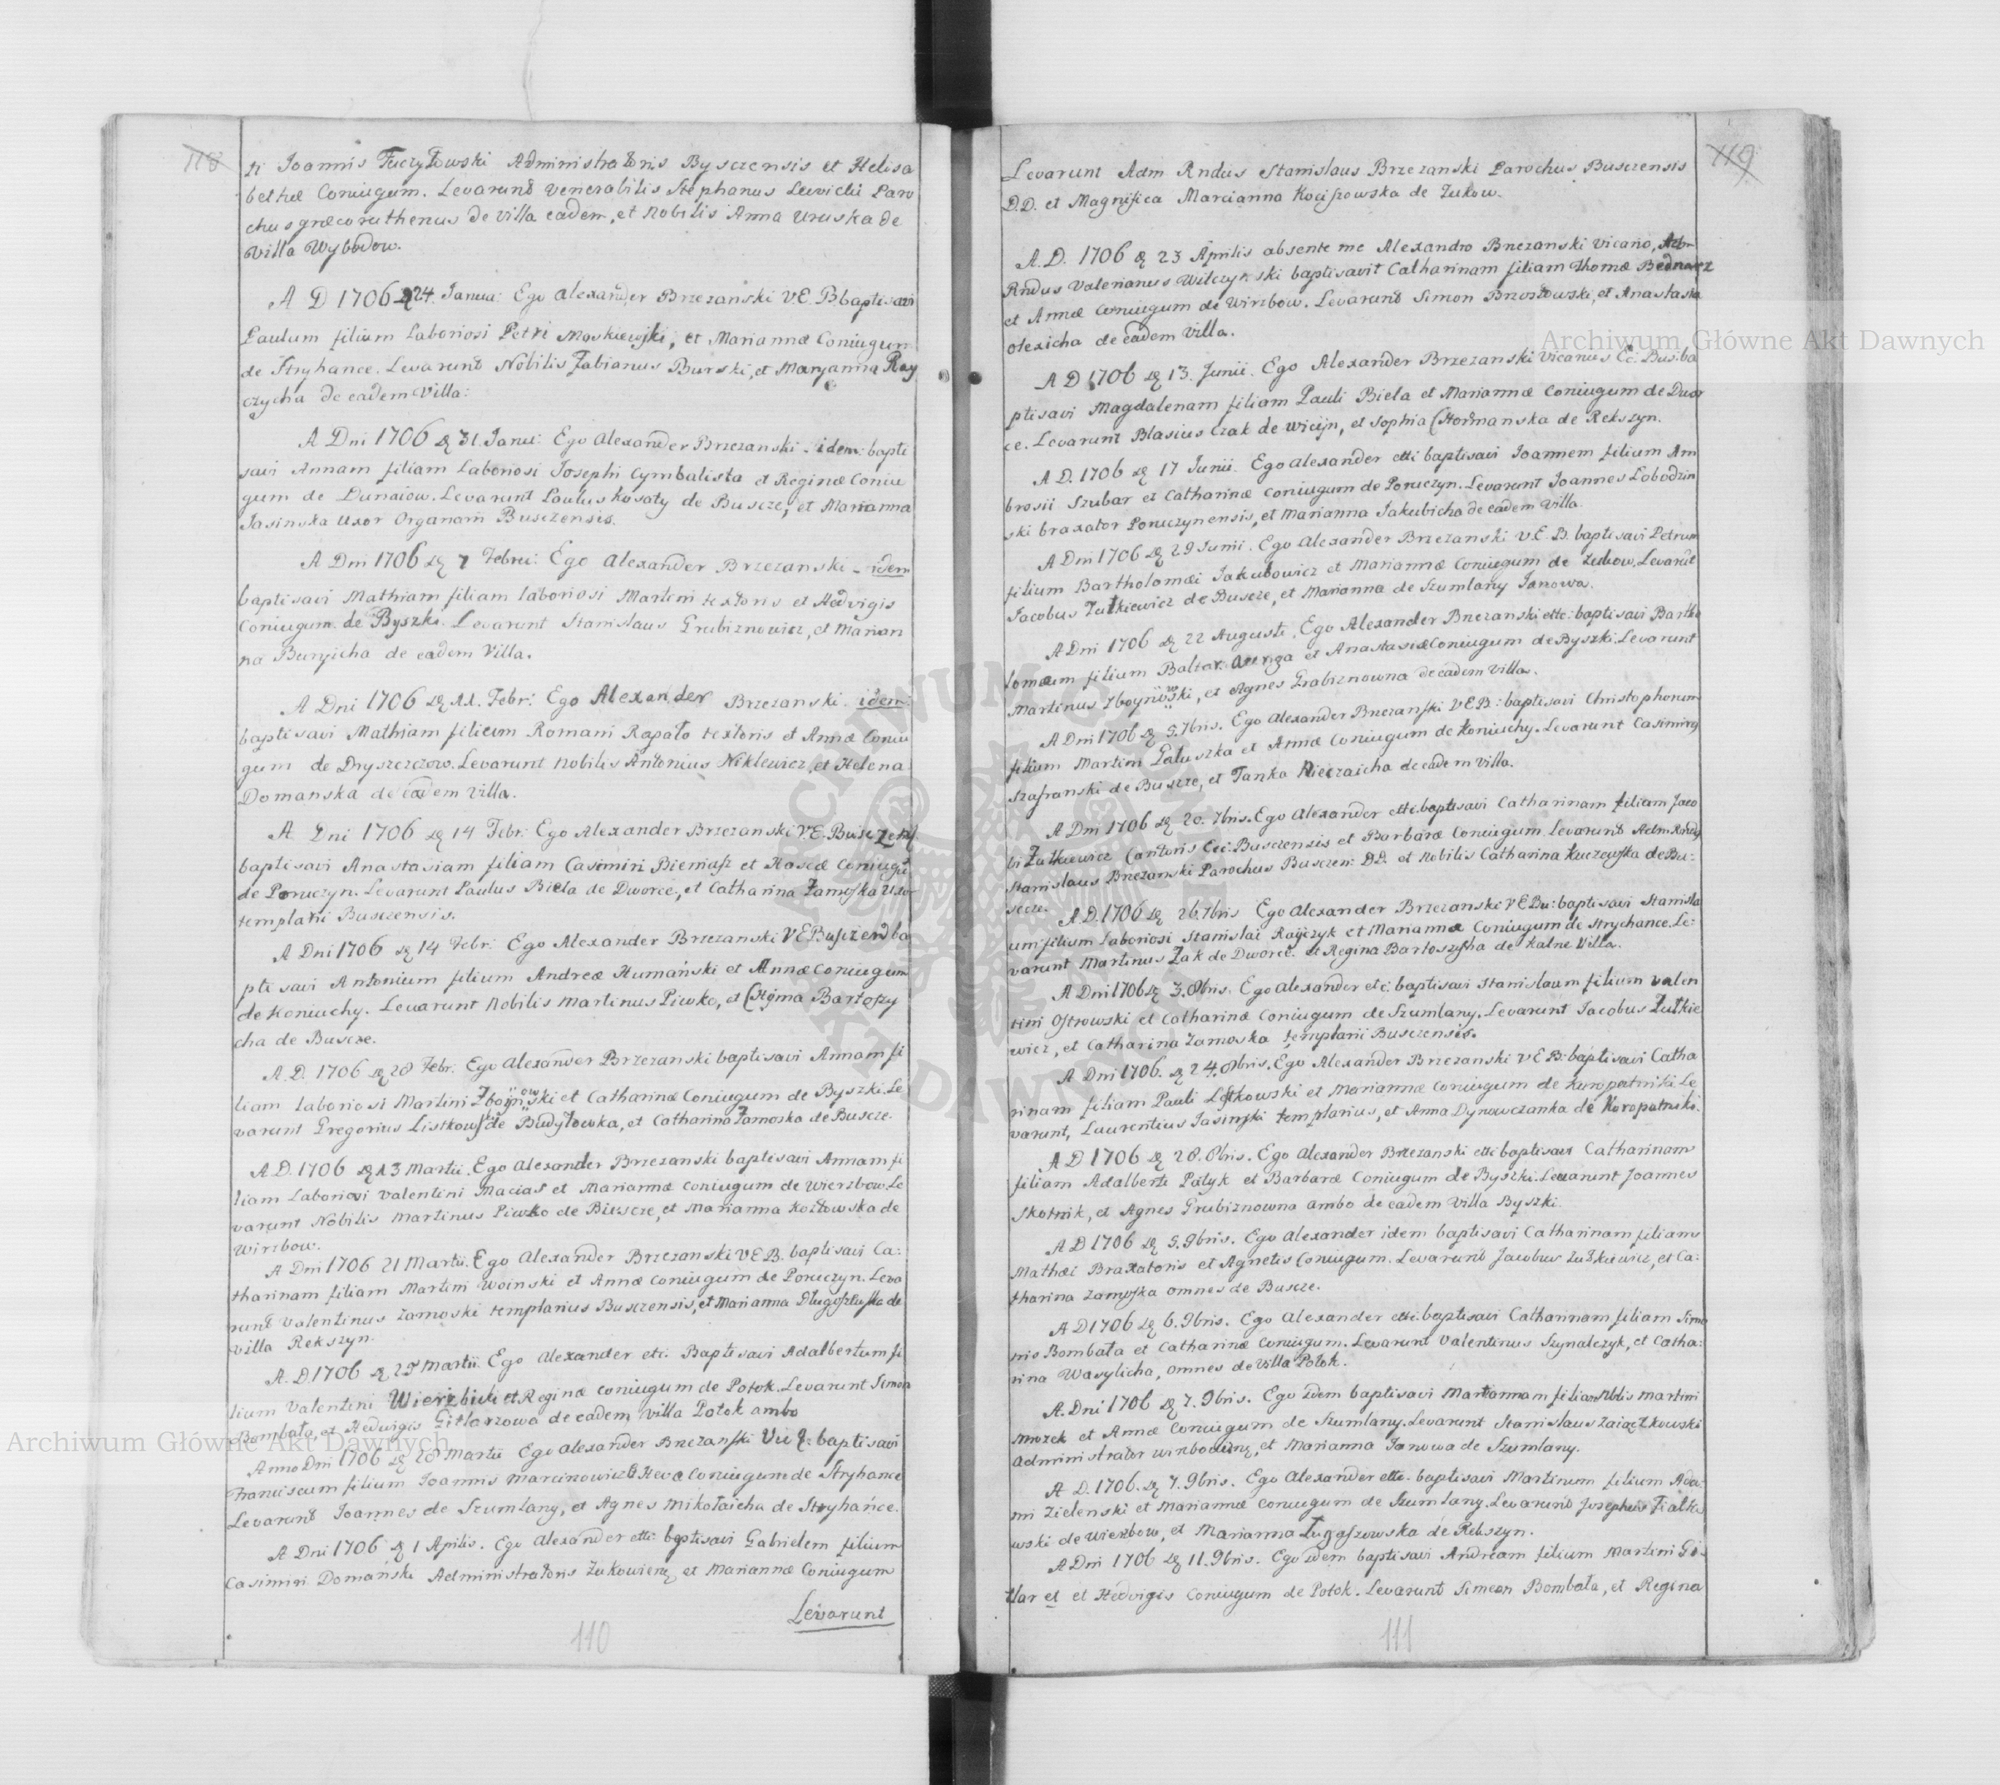 118
ti Joannis Tuczyłowski Administratoris Bysczensis et Helisa
bethæ Coniugum. Levarunt Venerabilis Stephanus Lewicki Paro
chus græcoruthenus de villa eadem, et Nobilis Anna Uruska de
Villa Wybodow.
A D 1706 24. Janua: Ego Alexander Brzezanski V.E.B baptisavi
Paulum filium Laboriosi Petri Moskiewski, et Mariannæ Coniugum
de Stryhance. Levarunt Nobilis Fabianus Burski, et Maryanna Ray
czycha de eadem Villa:
A Dni 1706 31. Janu: Ego Alexander Brzezanski - idem: bapti
savi Annam filiam Laboriosi Josephi Cymbalista et Reginæ Coniu
gum de Dunaiow. Levarunt Paulus Kosaty de Buscze, et Marianna
Jasinska Uxor Organarii Busczensis.
A Dni 1706 7 Febru: Ego Alexander Brzezanski - idem
baptisavi Mathiam filiam Laboriosi Martini textoris et Hedvigis
Coniugum de Byszki. Levarunt Stanislaus Grabiznowicz, et Marian
na Buryicha de eadem Villa.
A Dni 1706 11. Febr: Ego Alexander Brzezanski - idem:
baptisavi Mathiam filium Romani Rapało textoris et Annæ Coniu
gum de Dryszczow. Levarunt Nobilis Antonius Niklewicz, et Helena
Domanska de eadem Villa.
A Dni 1706 14 Febr: Ego Alexander Brzezanski V.E. Busczens
baptisavi Anastasiam filiam Casimiri Biernasz et Hascæ Coniugu
de Poruczyn. Levarunt Paulus Biela de Dworce, et Catharina Zamoska Uxo-
templarii Busczensis.
A Dni 1706 14 Febr: Ego Alexander Brzezanski V E Buszczen ba
ptisavi Antonium filium Andreæ Humański et Annæ Coniugum
de Koniuchy. Levarunt Nobilis Martinus Piwko, et Chyma Bartoszy
cha de Buscze.
A. D. 1706 28 Febr: Ego Alexander Brzezanski baptisavi Annam fi
liam laboriosi Martini Zboinowski et Catharinæ Coniugum de Byszki. Le
varunt Gregorius Listkows de Budyłowka, et Catharina Zamoska de Buscze.
A. D. 1706 13 Martii. Ego Alexander Brzezanski baptisavi Annam fi
liam Laboriosi Valentini Macias et Mariannæ Coniugum de Wierzbow. Le
varunt Nobilis Martinus Piwko de Buscze, et Marianna Kozłowska de
Wirzbow.
A Dni 1706 21 Martii. Ego Alexander Brzezanski V.E.B. baptisavi Ca:
tharinam filiam Martini Woinski et Annæ Coniugum de Poruczyn. Leva
runt Valentinus Zamoski templarius Busczensis, et Marianna Długoszewska de
villa Rekszyn.
A. D. 1706 25 Martii. Ego Alexander etc. Baptisavi Adalbertum fi
lium Valentini Wierzbicki et Reginæ Coniugum de Potok. Levarunt Simon
Bombała, et Hedvigis Gitlarzowa de eadem villa Potok ambo
Anno Dni 1706 28 Martii Ego Alexander Brzezanski Vic E: baptisavi
Franciscum filium Joannis Marcinowicz et Hevæ Coniugum de Stryhance
Levarunt Joannes de Szumlany, et Agnes Mikołaicha de Stryhańce.
A Dni 1706 1 Aprilis. Ego Alexander ettc: baptisavi Gabrielem filium
Casimiri Domański Administratoris Zukowien, et Mariannæ Coniugum
Levarunt
110
119
Levarunt Adm Rndus Stanislaus Brzezanski Parochus Busczensis
D.D. et Magnifica Marcianna Kociszowska de Zukow.
A. D. 1706 23 Aprilis absente me Alexandro Brzezanski Vicario, Adm
Rndus Valerianus Wilczynski baptisavit Catharinam filiam Thomæ Bednarz
et Annæ Coniugum de Wirzbow. Levarunt Simon Brzostowski, et Anastasia
Olexicha de eadem Villa.
A D 1706 13. Junii. Ego Alexander Brzezanski Vicarius Ec: Bus: ba
ptisavi Magdalenam filiam Pauli Biela et Mariannæ Coniugum de Dwor
ce. Levarunt Blasius Czak de Wicijn, et Sophia Chodmańska de Rekszyn.
A. D. 1706 17 Junii. Ego Alexander ettc baptisavi Joannem filium Am
brosii Szubar et Catharinæ Coniugum de Poruczyn. Levarunt Joannes Lobodzin
ski braxator Poruczynensis, et Marianna Jakubicha de eadem Villa.
A Dni 1706 29 Junii. Ego Alexander Brzezanski V.E.B. baptisavi Petrum
filium Bartholomæi Jakubowicz et Mariannæ Coniugum de Zukow. Levarunt
Jacobus Zulkiewicz de Buscze, et Marianna de Szumlany Janowa.
A Dni 1706 22 Augusti. Ego Alexander Brzezanski ettc: baptisavi Bartho
lomæum filium Baltaz. et Anastasiæ Coniugum de Byszki. Levarunt
Martinus Zboynowski, et Agnes Grabiznowna de eadem Villa.
A Dni 1706 5. 7bris. Ego Alexander Brzezanski V E B: baptisavi Christophorum
filium Martini Gałuszka et Annæ Coniugum de Koniuchy. Levarunt Casimirus
Szafranski de Buscze, et Tanka Nieczaicha de eadem Villa.
A Dni 1706 20. 7bris. Ego Alexander ettc. baptisavi Catharinam filiam Jaco
bi Zulkiewicz Cantoris Ecc: Busczensis et Barbaræ Coniugum. Levarunt Adm Rndus
Stanislaus Brzezanski Parochus Busczen: D.D. et Nobilis Catharina Kuczewska de Bu-
scze.
A. D. 1706 26. 7bris Ego Alexander Brzezanski V E Bu: baptisavi Stanisla
um filium Laboriosi Stanislai Rajczyk et Mariannæ Coniugum de Strychance. Le:
varunt Martinus Zak de Dworce. et Regina Bartoszycha de Kalne Villa.
A Dni 1706 3. 8bris. Ego Alexander etc: baptisavi Stanislaum filium Valen
tini Ostrowski et Catharinæ Coniugum de Szumlany. Levarunt Jacobus Zulkie
wicz, et Catharina Zamoska templarii Busczensis.
A Dni 1706. 24. 8bris. Ego Alexander Brzezanski V E B: baptisavi Catha
rinam filiam Pauli Listkowski et Mariannæ Coniugum de Kuropatniki Le
varunt, Laurentius Jasinski templarius, et Anna Dynowczanka de Koropatniki.
A D 1706 28. 8bris. Ego Alexander Brzezanski ettc baptisavi Catharinam
filiam Adalberti Patyk et Barbaræ Coniugum de Byszki. Levarunt Joannes
Skotnik, et Agnes Grabiznowna ambo de eadem Villa Byszki.
A D 1706 5. 9bris. Ego Alexander idem baptisavi Catharinam filiam
Mathæi Braxatoris et Agnetis Coniugum. Levarunt Jacobus Zulkiewicz, et Ca:
tharina Zamoska omnes de Buscze.
A D 1706 6. 9bris. Ego Alexander ettc. baptisavi Catharinam filiam Simo
nis Bombała et Catharinæ Coniugum. Levarunt Valentinus Szynalczyk, et Catha:
rina Wasylicha, omnes de Villa Potok.
A. Dni 1706 7. 9bris. Ego idem baptisavi Mariannam filiam Nblis Martini
Mrozek et Annæ Coniugum de Szumlany. Levarunt Stanislaus Zaiączkowski
Administrator, et Marianna Janowa de Szumlany.
A D. 1706. 7. 9bris. Ego Alexander ettc. baptisavi Martinum filium Ada:
mi Zielenski et Mariannæ Coniugum de Szumlany. Levarunt Josephus Fiałko
wski de Wierzbow, et Marianna Długoszowska de Rekszyn.
A Dni 1706 11. 9bris. Ego idem baptisavi Andream filium Martini Gi-
tlar et et Hedvigis Coniugum de Potok. Levarunt Simeon Bombała, et Regina
111
Archiwum Główne Akt Dawnych
Archiwum Główne Akt Dawnych
ARCHIWUM GŁÓWNE AKT DAWNYCH